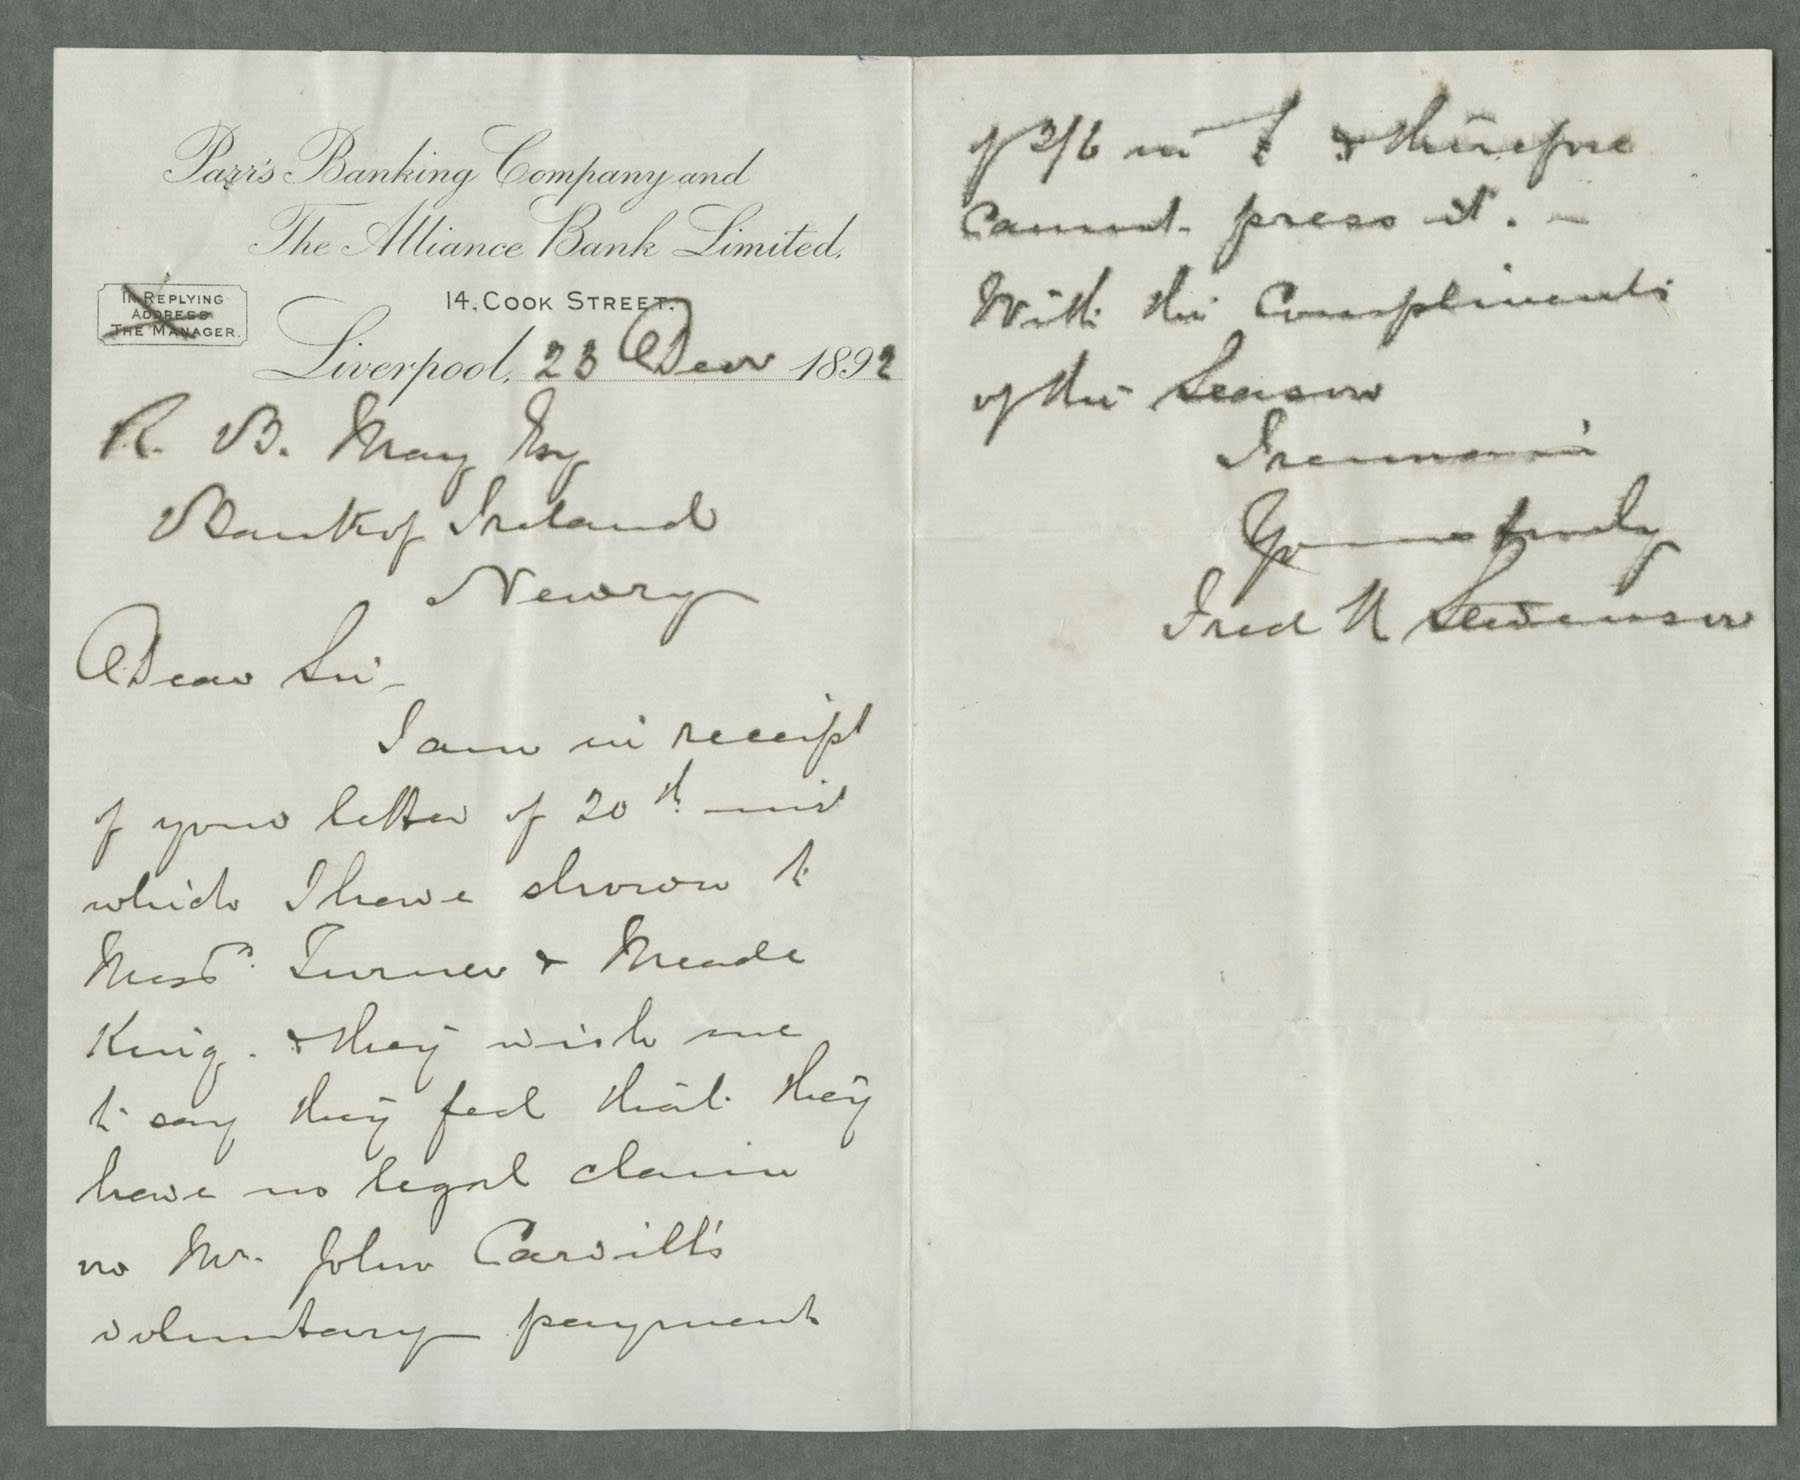 Parr's Banking Company and
The Alliance Bank Limited.
14, COOK STREET.
IN REPLYING
ADDRESS
THE MANAGER.
Liverpool, 23 Decr 1892
R. B. May Esq
Bank of Ireland
Newry
Dear Sir
I am in receipt
of your letter of 20th inst
which I have shown to
Messrs. Turner & Meade
King. & they wish me
to say they feel that they
have no legal claim
on Mr. John Carvill's
voluntary payment
of 2/6 in £ & therefore
cannot press it. -
With the Compliments
of the Season
I remain
Yours truly
Fred N Stevenson